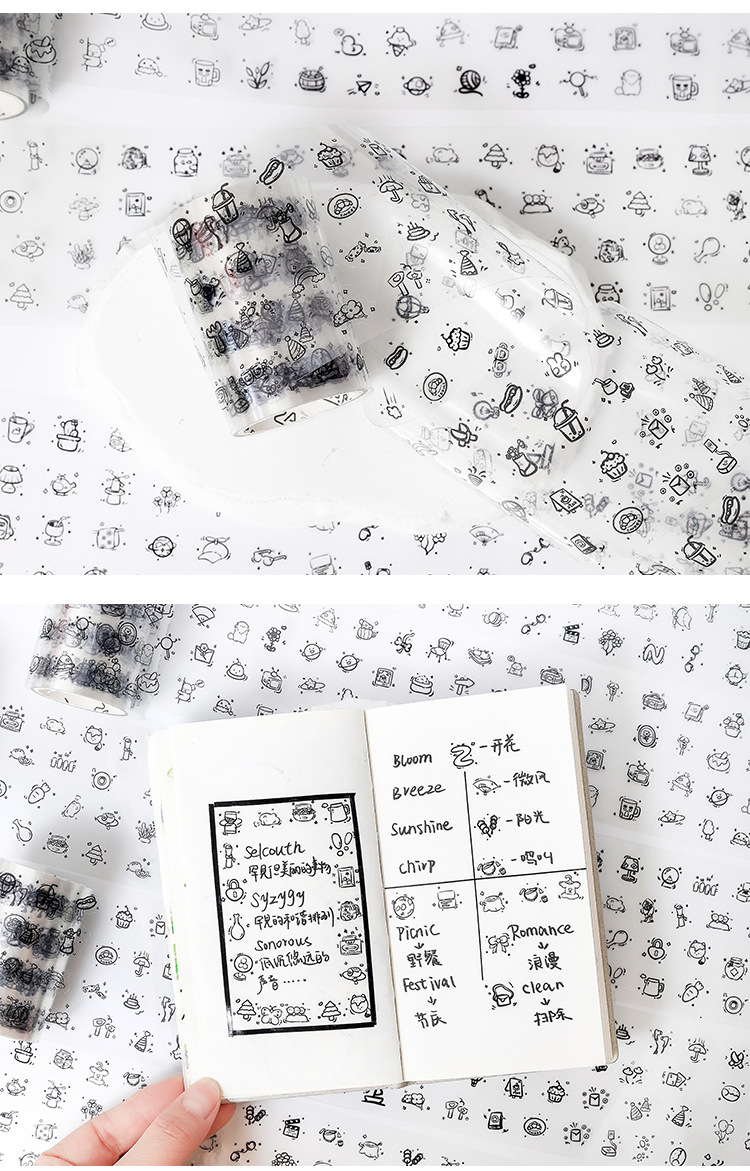 Selcouth
罕见但美丽的事物
Syzygy
罕见的和谐排列
Sonorous
低沉悠远的
声音……
Bloom - 开花
Breeze - 微风
Sunshine - 阳光
chirp - 鸣叫
Picnic
野餐
Festival
节庆
Romance
浪漫
clean
扫除